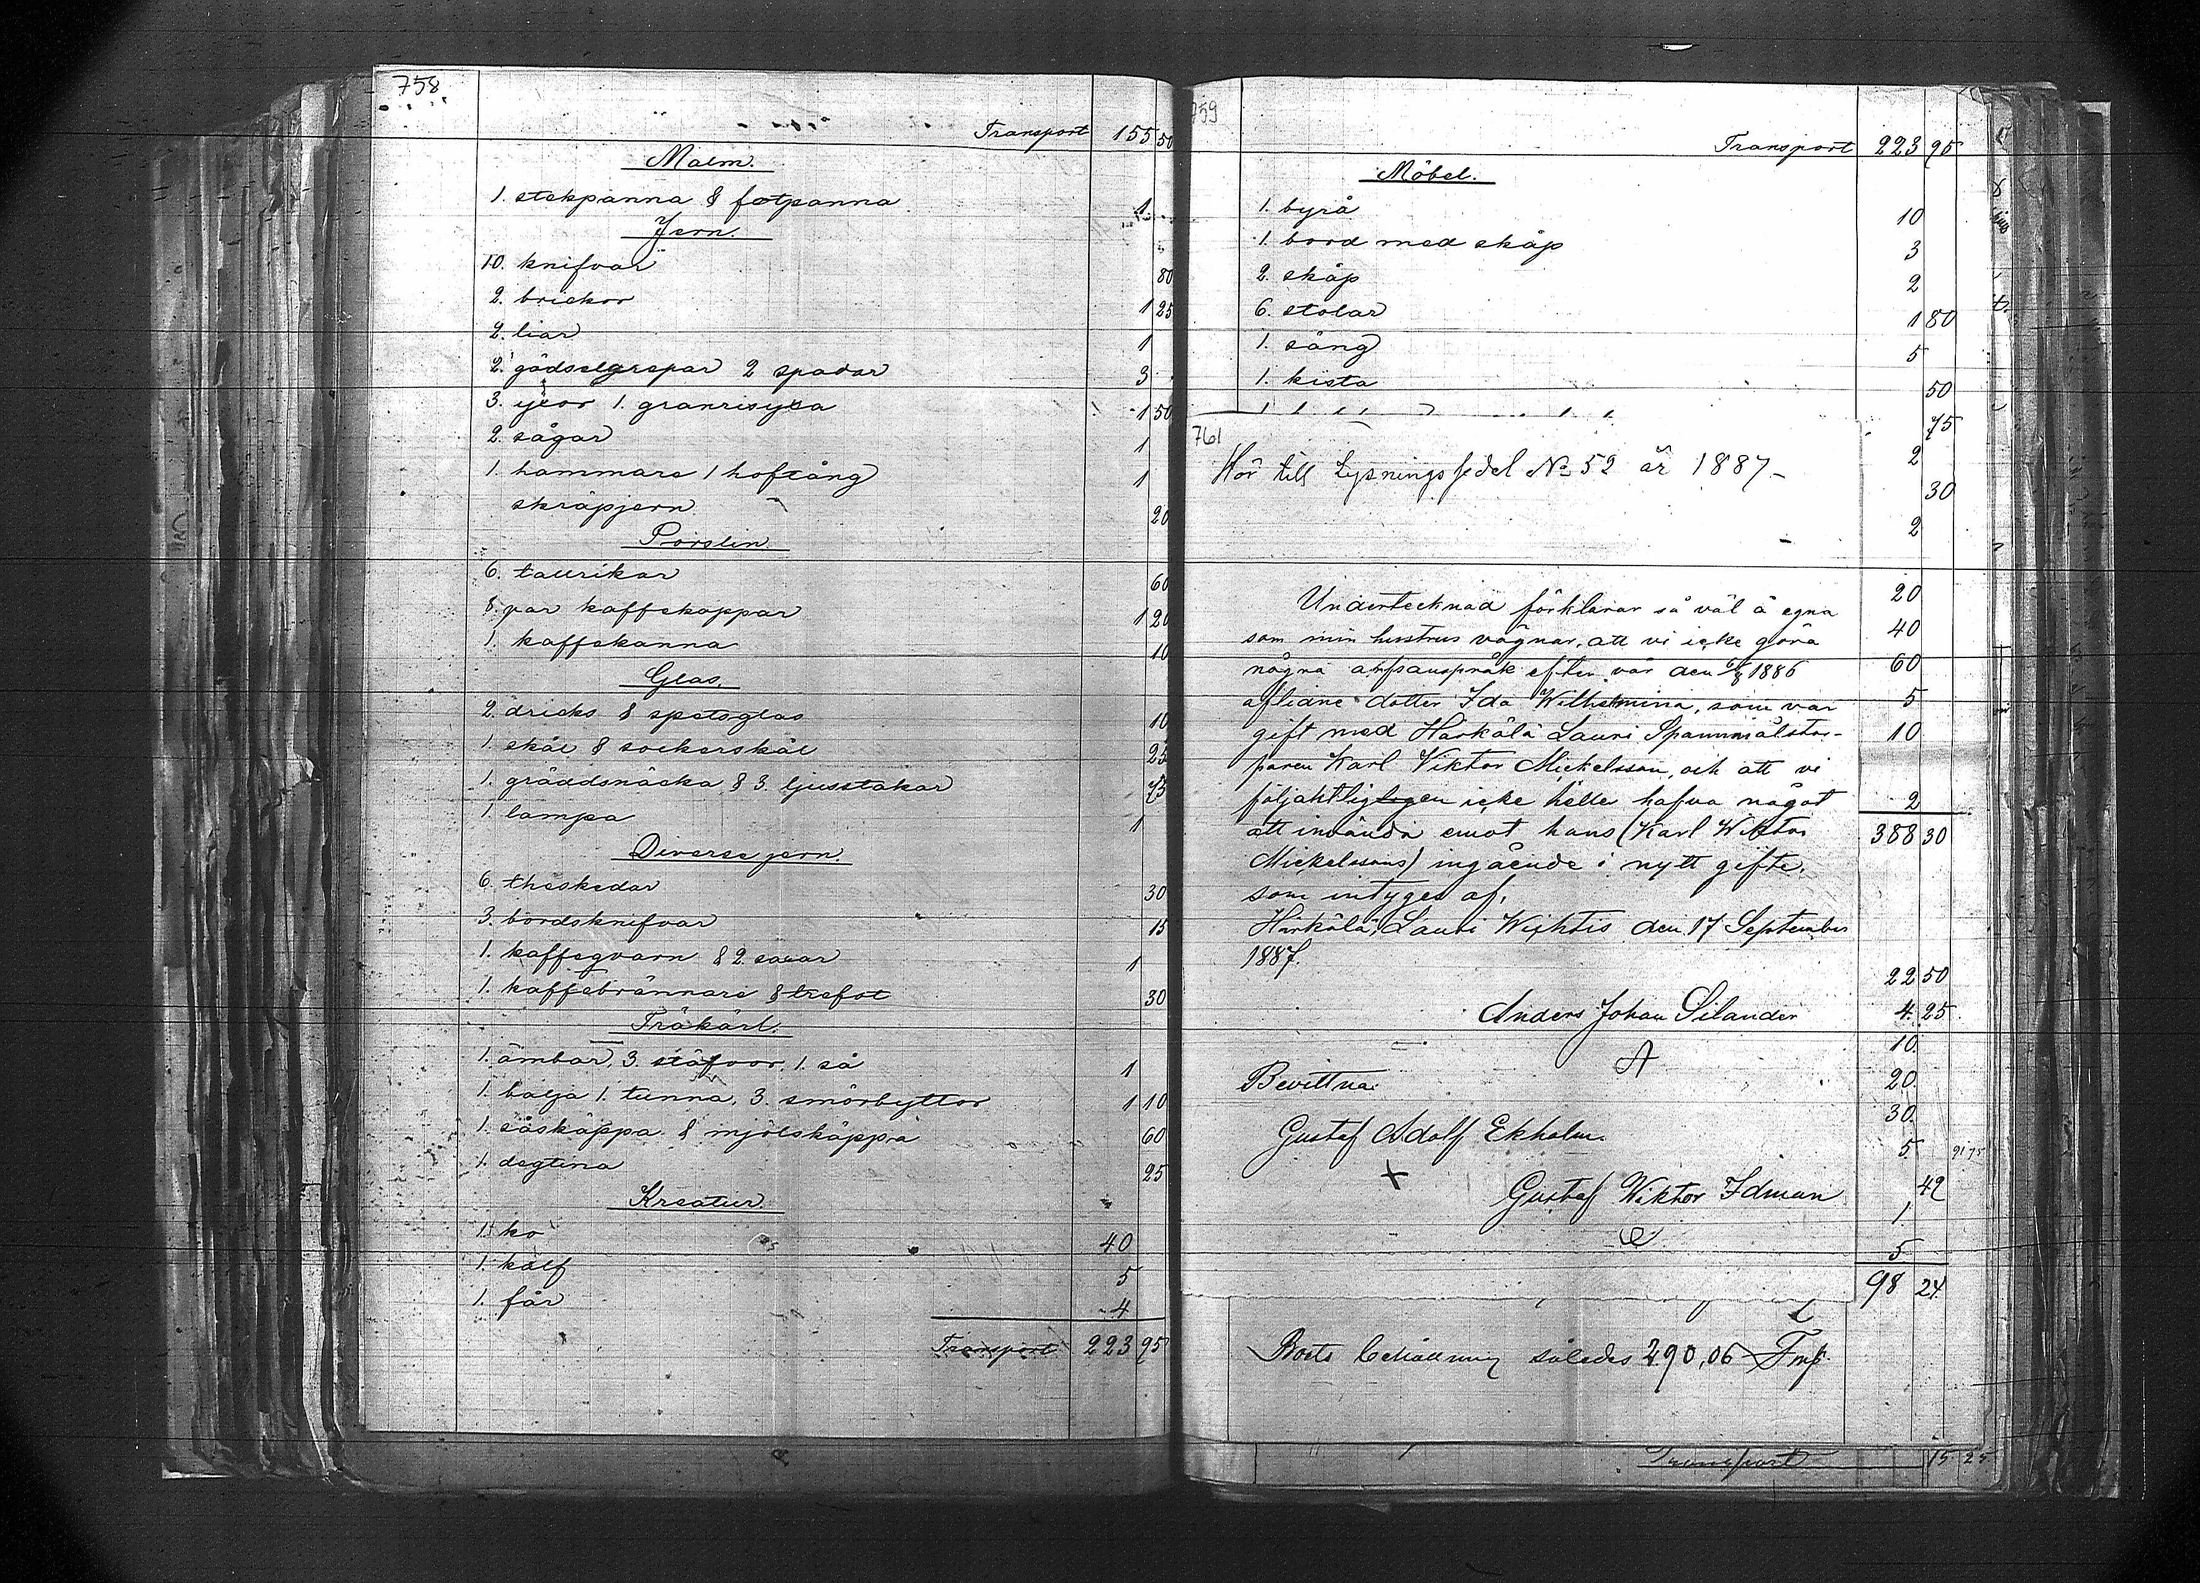 758
Transport 155 50
Malm.
1. stekpanna & fotpanna 1
Jern.
10. knifvar 80
2. brickor 1 25
2. liar 1
2. gödselgrepar 2 spadar 3
3. yxor 1. granrisyxa 1 50
2. sågar 1
1. hammare 1 hoftång 1
skräpjern 20
Porslin.
6. tallrikar 60
8. par kaffekoppar 1 20
1. kaffekanna 10
Glas.
2. dricks & spetsglas 10
1. skål & sockerskål 25
1. gräddsnäcka & 3. ljusstakar 75
1. lampa 1
Diverse jern.
6. theskedar 30
3. bordsknifvar 15
1. kaffeqvarn & 2. 1
1. kaffebrännare & trefot 30
Träkärl.
1. ämbar, 3. stäfvor, 1. så 1
1. balja 1. tunna, 3. smörbyttor 1 10
1. såskäppa & mjölskäppa 60
1. degtina 25
Kreatur.
1. ko 40
1. kalf 5
1. får 4
Transport 223 95
759
Transport 223 95
Möbel.
1. byrå 10
1. bord med skåp 3
2. skåp 2
6. stolar 1 80
1. säng 5
1. kista 50
75
761
2
Hör till Lysningssedel No 52 år 1887
30
2
20
Undertecknad förklarar så väl å egna
40
som min hustrus vägnar, att vi icke göra
60
några arfsanspråk efter vår den 6/8 1886
5
aflidne dotter Ida Wilhelmina, som var
10
gift med Härkälä Lauri Spannmålstor-
paren Karl Viktor Mickelsson, och att vi
2
följaktligen icke heller hafva något
388 30
att invända emot hans (Karl Wiktor
Mickelssons) ingående i nytt gifte,
som intygas af,
Härkälä, Lauri Wichtis den 17 September
1887.
22 50
Anders Johan Silander
4. 25
A
10.
Bevittna:
20.
30.
Gustaf Adolf Ekholm.
5. 91 75
+
42
Gustaf Wiktor Idman
1
5
98 24
Boets behållning således 290,06 Fmk.
Transport 15 25